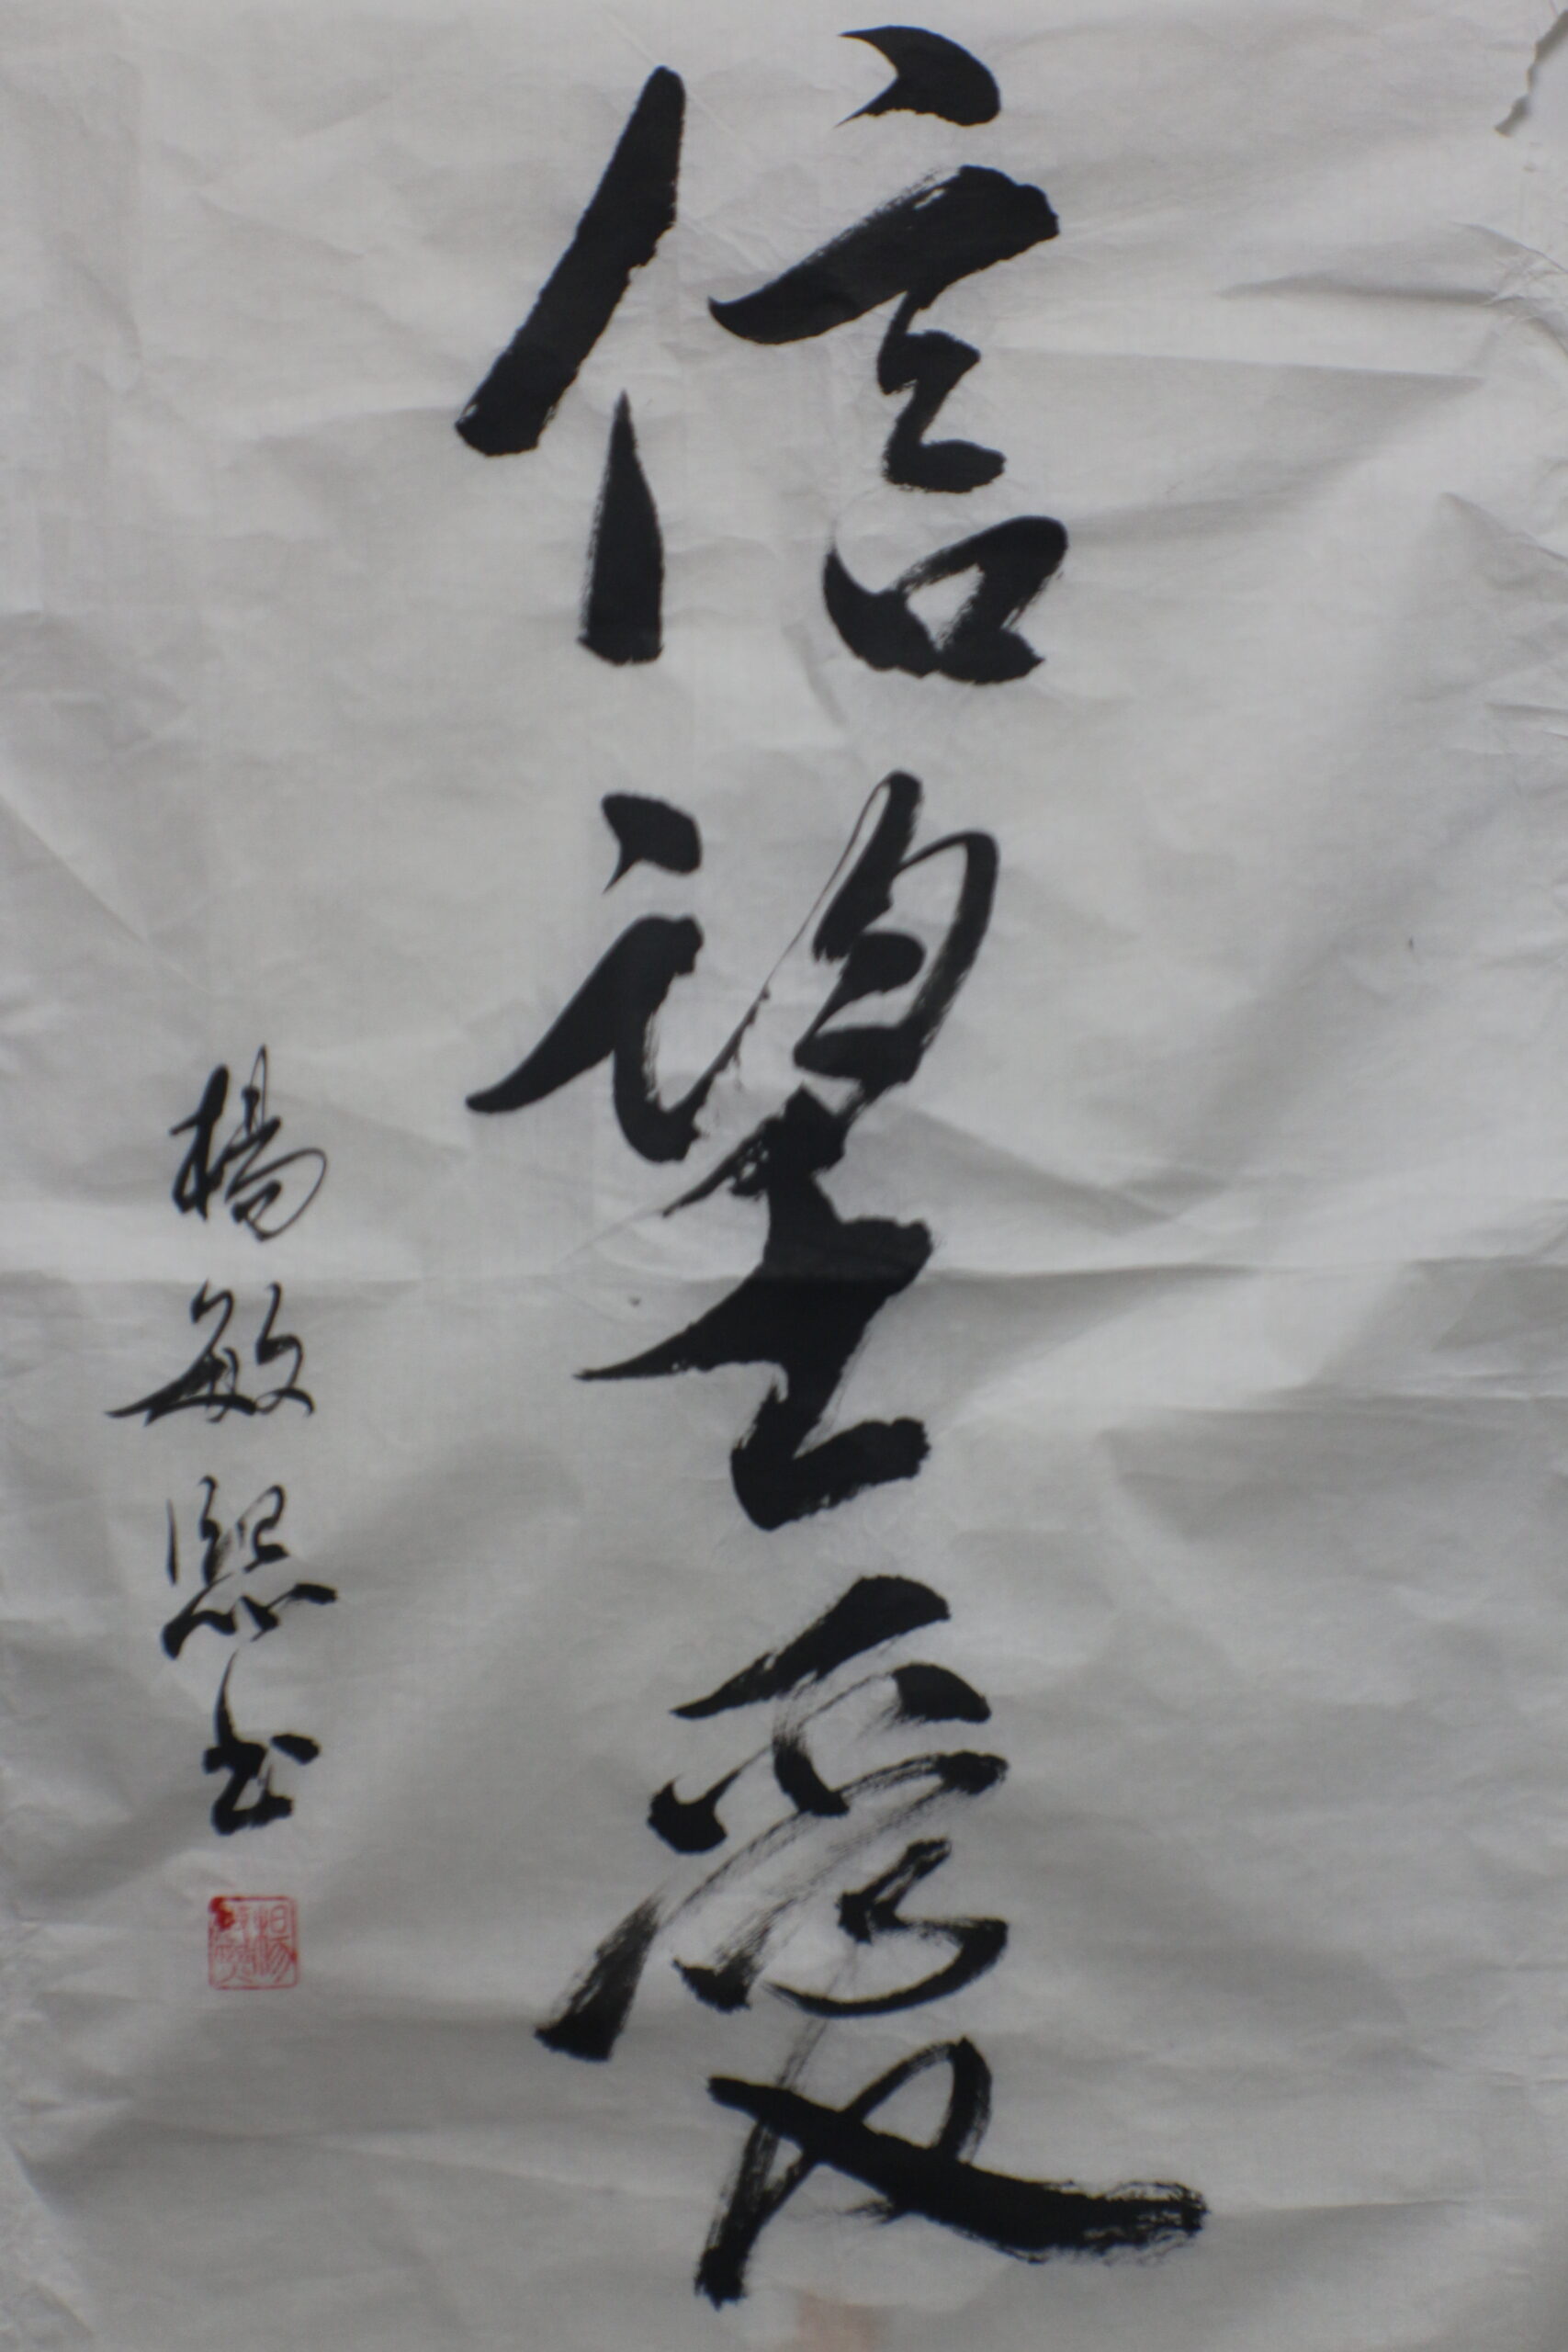 信望愛
楊敏熙書